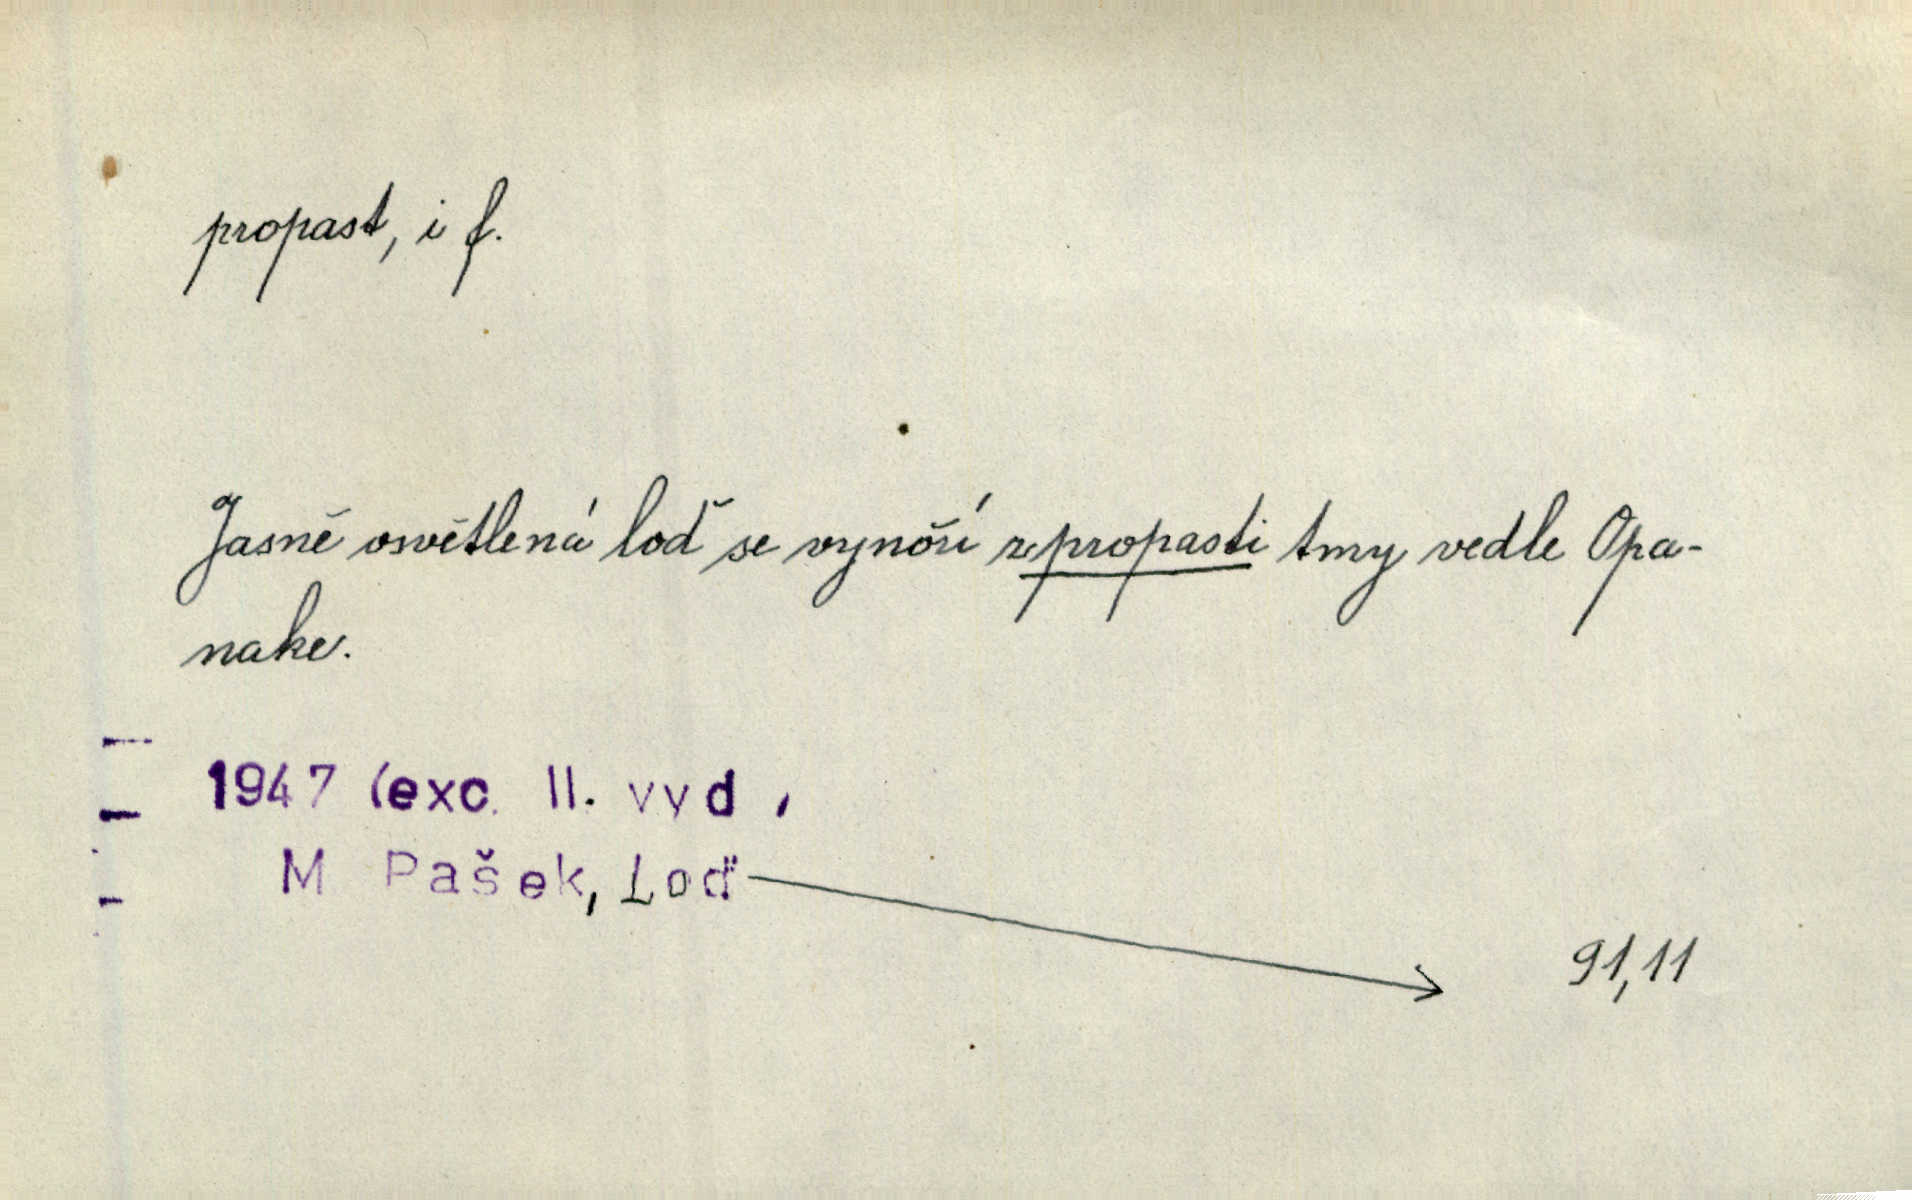 propast, i f.
Jasně osvětlená loď se vynoří z propasti tmy vedle Opa-
nake.
1947 (exc. II. vyd,
M Pašek, Loď
91,11